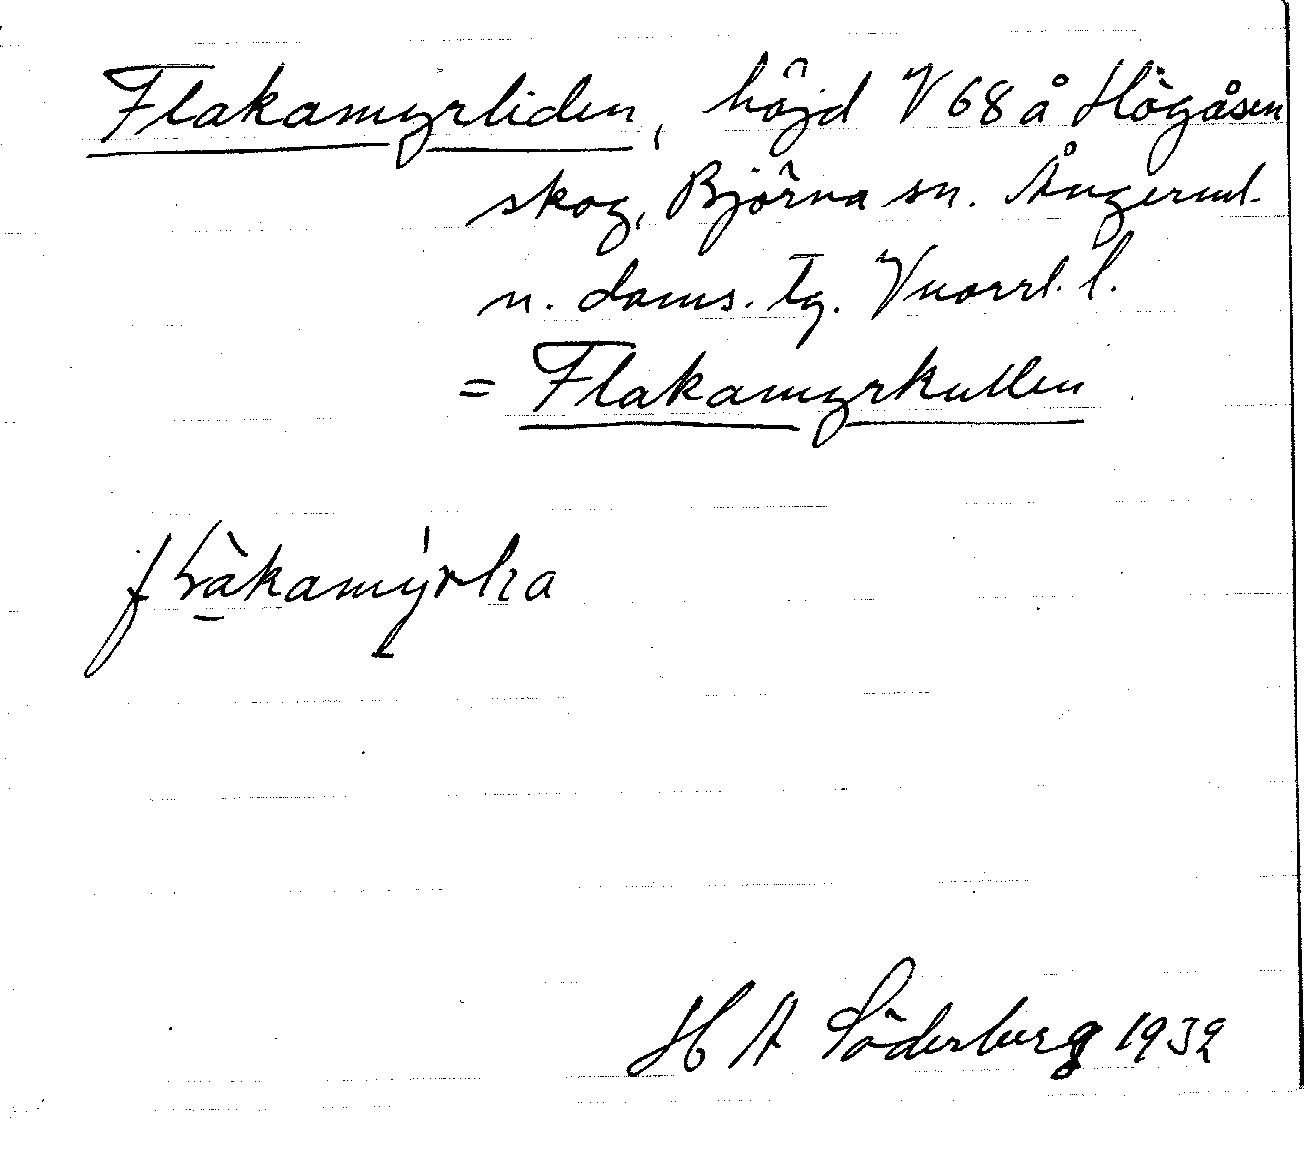 Flakamyrliden, höjd V 68 å Högåsen
skog, Björna sn. Ångerml.
n. doms. tg. Vuorrl. l.
= Flakamyrkullen
H A Söderberg 1932